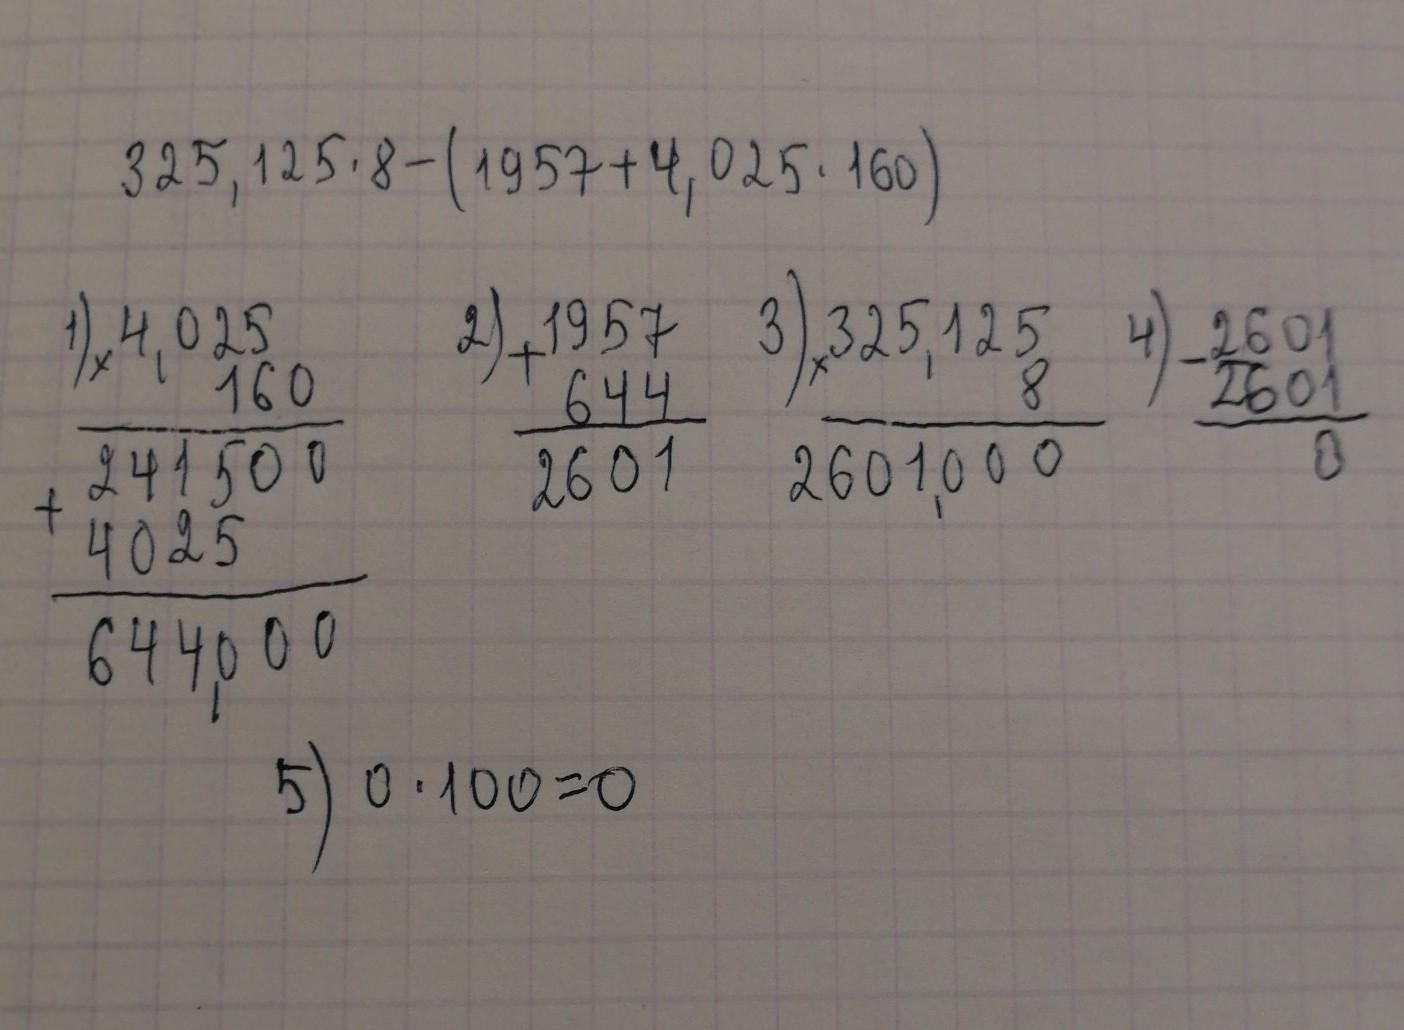 325,125·8-(1957+4,025·160)
1) × 4,025
160
241500
+ 4025
644,000
2) + 1957
644
2601
3) × 325,125
8
2601,000
4) - 2601
2601
0
5) 0·100=0